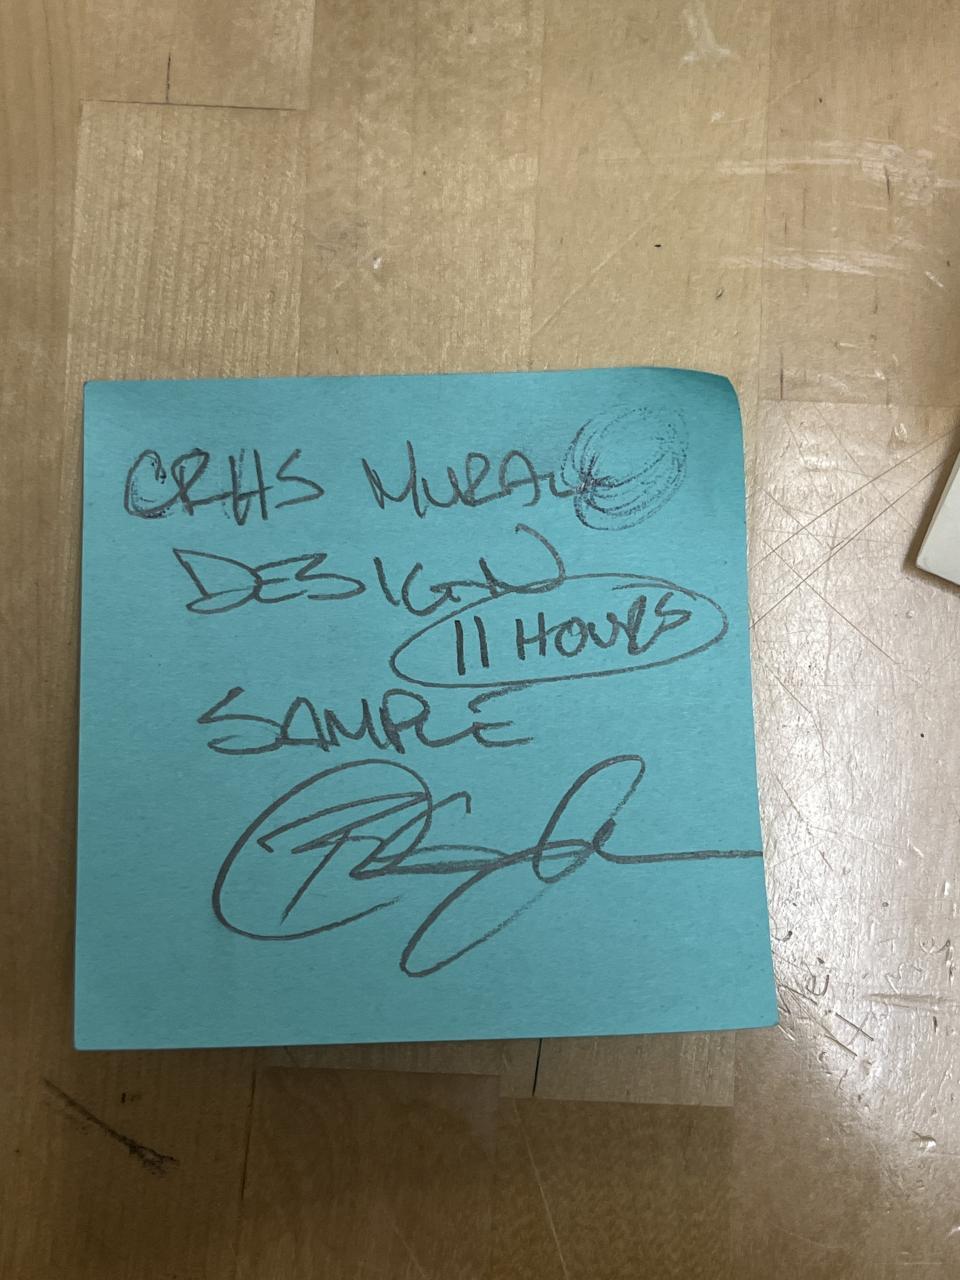 CRHS MURAL
DESIGN
11 HOURS
SAMPLE